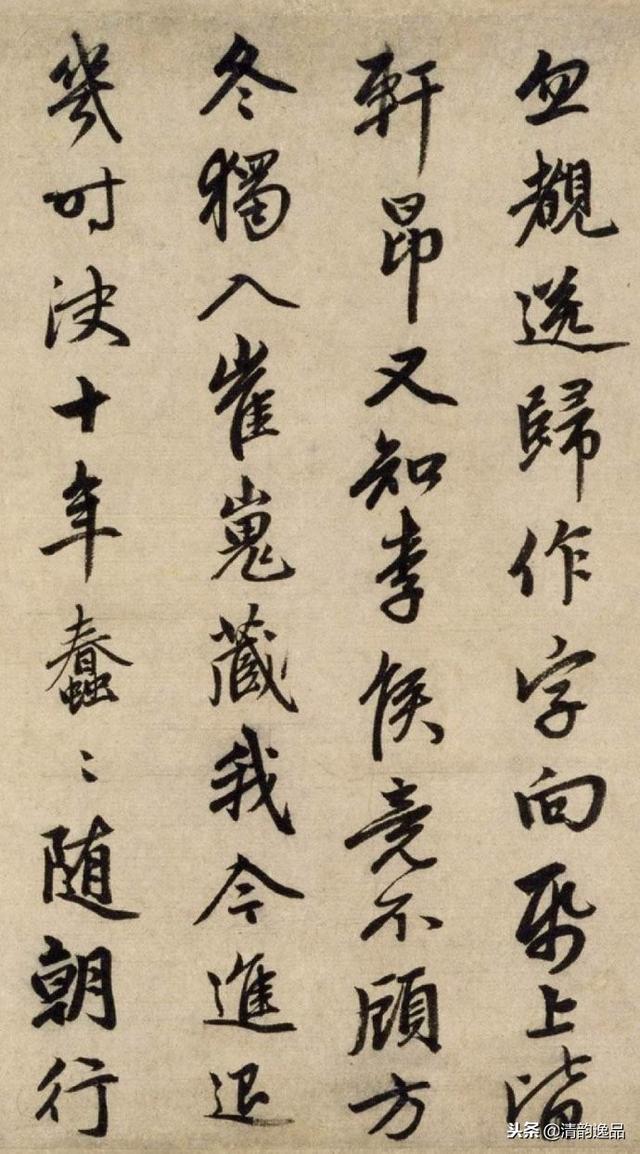 忽覩送歸作字向帋上皆
軒昂又知李侯竟不顧方
冬獨入崔嵬藏我今進退
幾时决十年蠢〻随朝行
头条@清韵逸品